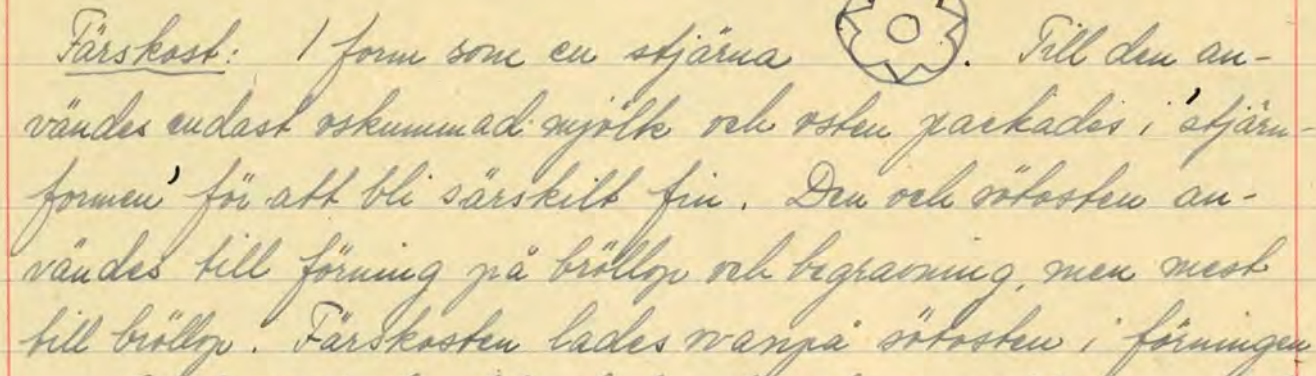 Färskost: I form som en stjärna. Till den an-
vändes endast oskummad mjölk och osten packades i 'stjärn-
formen' för att bli särskilt fin. Den och sötosten an-
vändes till förning på bröllop och begravning, men mest
till bröllop. Färskosten lades ovanpå sötosten i förningen